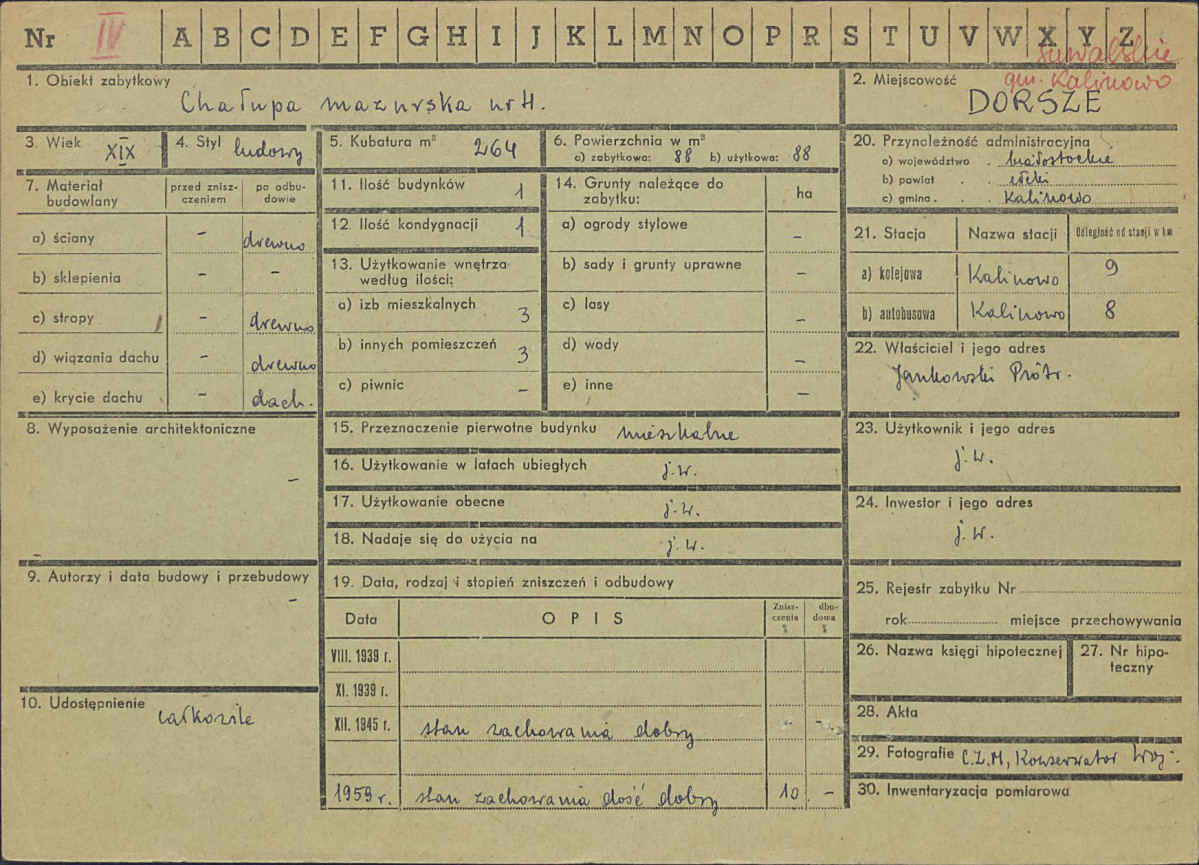 Nr IV A B C D E F G H I J K L M N O P R S T U V W X Y Z
suwalskie
gm. Kalinowo
1. Obiekt zabytkowy
Chałupa mazurska nr 4.
2. Miejscowość
DORSZE
3. Wiek XIX
4. Styl ludowy
5. Kubatura m³ 264
6. Powierzchnia w m²
a) zabytkowa: 88 b) użytkowa: 88
7. Materiał budowlany
przed zniszczeniem
po odbudowie
a) ściany - drewno
b) sklepienia - -
c) stropy - drewno
d) wiązania dachu - drewno
e) krycie dachu - dach.
8. Wyposażenie architektoniczne
-
9. Autorzy i data budowy i przebudowy
-
10. Udostępnienie
11. Ilość budynków 1
12. Ilość kondygnacji 1
13. Użytkowanie wnętrza
według ilości:
a) izb mieszkalnych 3
b) innych pomieszczeń 3
c) piwnic -
14. Grunty należące do
zabytku:
ha
a) ogrody stylowe -
b) sady i grunty uprawne -
c) lasy -
d) wody -
e) inne -
15. Przeznaczenie pierwotne budynku mieszkalne
16. Użytkowanie w latach ubiegłych j.w.
17. Użytkowanie obecne j.w.
18. Nadaje się do użycia na j.w.
19. Data, rodzaj i stopień zniszczeń i odbudowy
Data OPIS
Zniszczenia %
dbudowa %
VIII. 1939 r.
XI. 1939 r.
XII. 1945 r. stan zachowania dobry - -
1959 r. stan zachowania dość dobry 10 -
20. Przynależność administracyjna
a) województwo . białostockie
b) powiat . . ełcki
c) gmina . . . Kalinowo
21. Stacja Nazwa stacji Odległość od stanji w km
a) kolejowa Kalinowo 9
b) autobusowa Kalinowo 8
22. Właściciel i jego adres
Jankowski Piotr.
23. Użytkownik i jego adres
j.w.
24. Inwestor i jego adres
j.w.
25. Rejestr zabytku Nr
rok miejsce przechowywania
26. Nazwa księgi hipotecznej
27. Nr hipoteczny
28. Akta
29. Fotografie C.Z.M, Konserwator Woj.
30. Inwentaryzacja pomiarowa